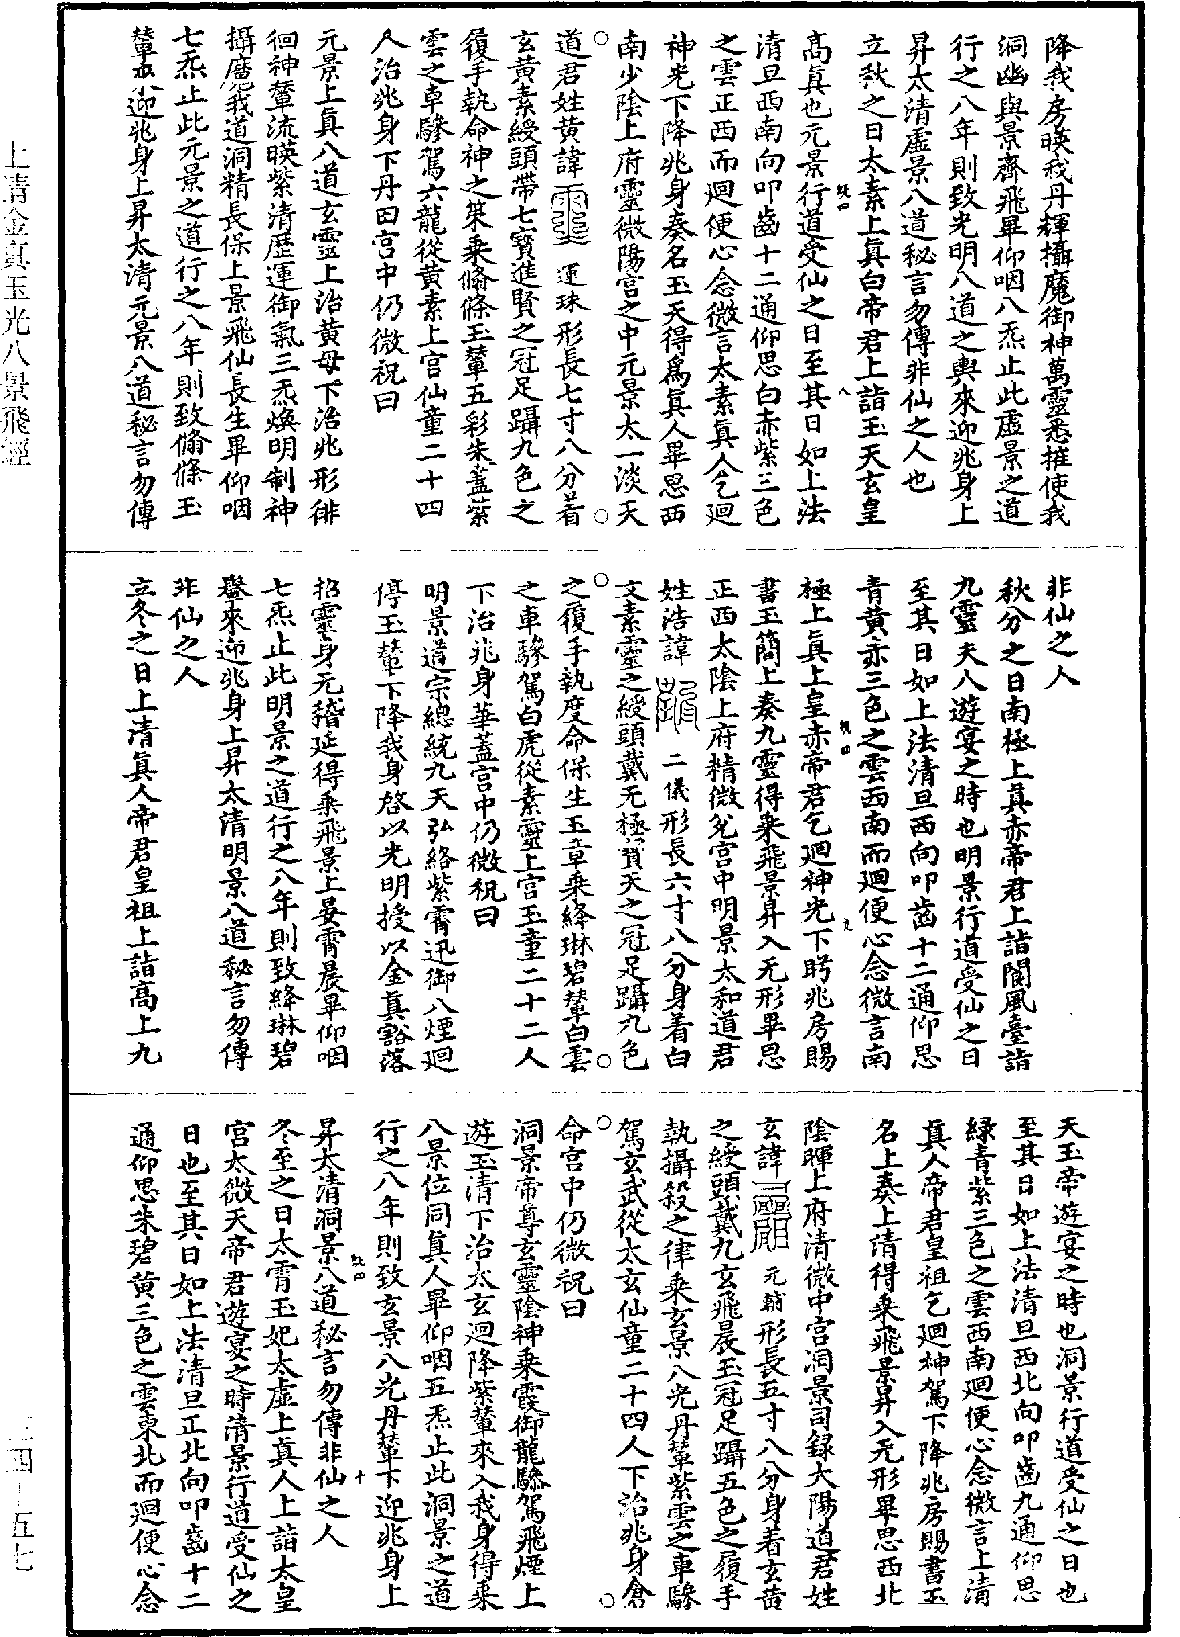 降我房暎我丹輝攝魔御神萬靈悉摧使我
洞幽與景齊飛畢仰咽八炁止此虛景之道
行之八年則致光明八道之輿來迎兆身上
昇太清虛景八道秘言勿傳非仙之人也
立秋之日太素上真白帝君上詣玉天玄皇
高真也元景行道受仙之日至其日如上法
清旦西南向叩齒十二通仰思白赤紫三色
之雲正西而廻便心念微言太素真人乞廻
神光下降兆身奏名玉天得爲真人畢思西
南少陰上府靈微陽宮之中元景太一淡天
道君姓黃諱運珠形長七寸八分着
玄黃素綬頭帶七寶進賢之冠足躡九色之
履手執命神之䇿乘翛條玉輦五彩朱蓋紫
雲之車驂駕六龍從黃素上宮仙童二十四
人治兆身下丹田宮中仍微祝曰
元景上真八道玄靈上治黃母下治兆形徘
徊神輦流暎紫清歷運御氣三炁煥明制神
攝魔我道洞精長保上景飛仙長生畢仰咽
七炁止此元景之道行之八年則致翛條玉
輦來迎兆身上昇太清元景八道秘言勿傳
非仙之人
秋分之日南極上真赤帝君上詣閬風臺詣
九靈夫人遊宴之時也明景行道受仙之日
至其日如上法清旦西向叩齒十二通仰思
青黃赤三色之雲西南而廻便心念微言南
極上真上皇赤帝君乞廻神光下眄兆房賜
書玉簡上奏九靈得乘飛景昇入无形畢思
正西太陰上府精微兌宮中明景太和道君
姓浩諱二儀形長六寸八分身着白
文素靈之綬頭戴无極寶天之冠足躡九色
之履手執度命保生玉章乘絳琳碧輦白雲
之車驂駕白虎從素靈上宮玉童二十二人
下治兆身華蓋宮中仍微祝曰
明景道宗總統九天弘絡紫霄迅御八煙廻
停玉輦下降我身啓以光明授以金真豁落
招靈身元稽延得乘飛景上晏霄晨畢仰咽
七炁止此明景之道行之八年則致絳琳碧
轝來迎兆身上昇太清明景八道秘言勿傳
非仙之人
立冬之日上清真人帝君皇祖上詣高上九
天玉帝遊宴之時也洞景行道受仙之日也
至其日如上法清旦西北向叩齒九通仰思
綠青紫三色之雲西南廻便心念微言上清
真人帝君皇祖乞廻神駕下降兆房賜書玉
名上奏上清得乘飛景昇入无形畢思西北
陰暉上府清微中宮洞景司錄太陽道君姓
玄諱元輔形長五寸八分身着玄黃
之綬頭戴九玄飛晨玉冠足躡五色之履手
執攝殺之律乘玄景八光丹輦紫雲之車驂
駕玄武從太玄仙童二十四人下治兆身倉
命宮中仍微祝曰
洞景帝尊玄靈陰神乘霞御龍驂駕飛煙上
遊玉清下治太玄迴降紫輦來入我身得乘
八景位同真人畢仰咽五炁止此洞景之道
行之八年則致玄景八光丹輦下迎兆身上
昇太清洞景八道秘言勿傳非仙之人
冬至之日太霄玉妃太虛上真人上詣太皇
宮太微天帝君遊宴之時清景行道受仙之
日也至其日如上法清旦正北向叩齒十二
通仰思朱碧黃三色之雲東北而廻便心念
上清金真玉光八景飛經
三四—五七